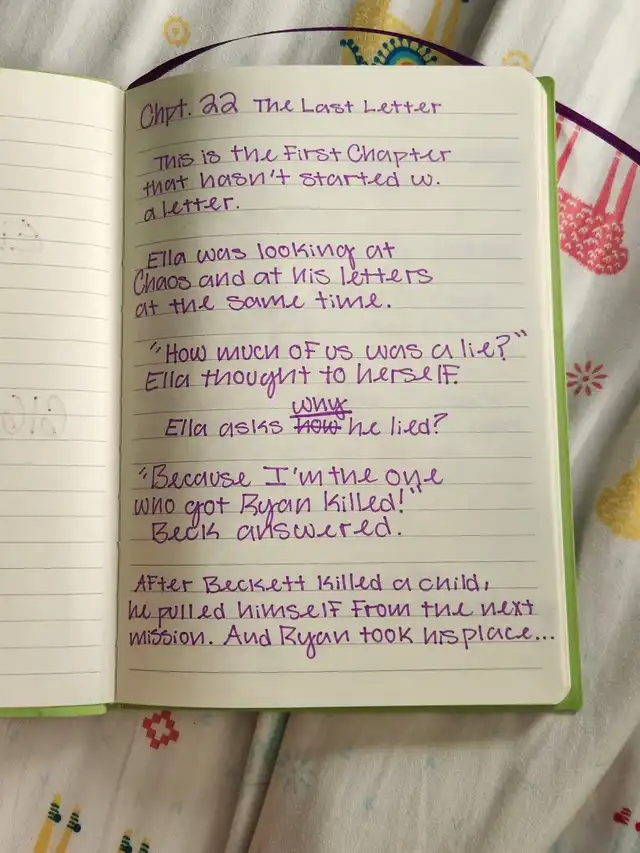 Chpt. 22 The Last Letter
This is the First Chapter
that hasn't started w.
a letter.
Ella was looking at
Chaos and at his letters
at the same time.
"How much of us was a lie?"
Ella thought to herself.
why
Ella asks how he lied?
"Because I'm the one
who got Ryan killed!"
Beck answered.
After Beckett killed a child,
he pulled himself from the next
mission. And Ryan took his place...